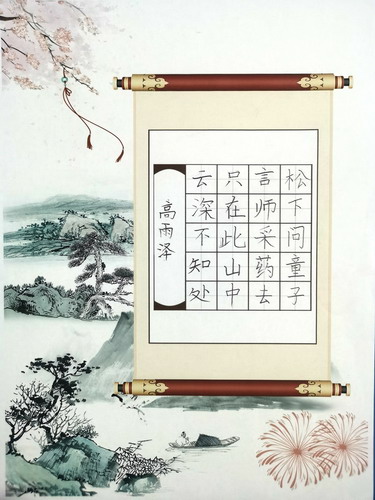 松下问童子
言师采药去
只在此山中
云深不知处
高雨泽